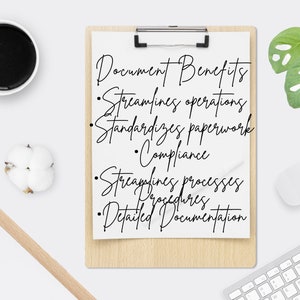 Document Benefits
•Streamlines operations
•Standardizes paperwork
•Compliance
•Streamlines processes
Procedures
•Detailed Documentation